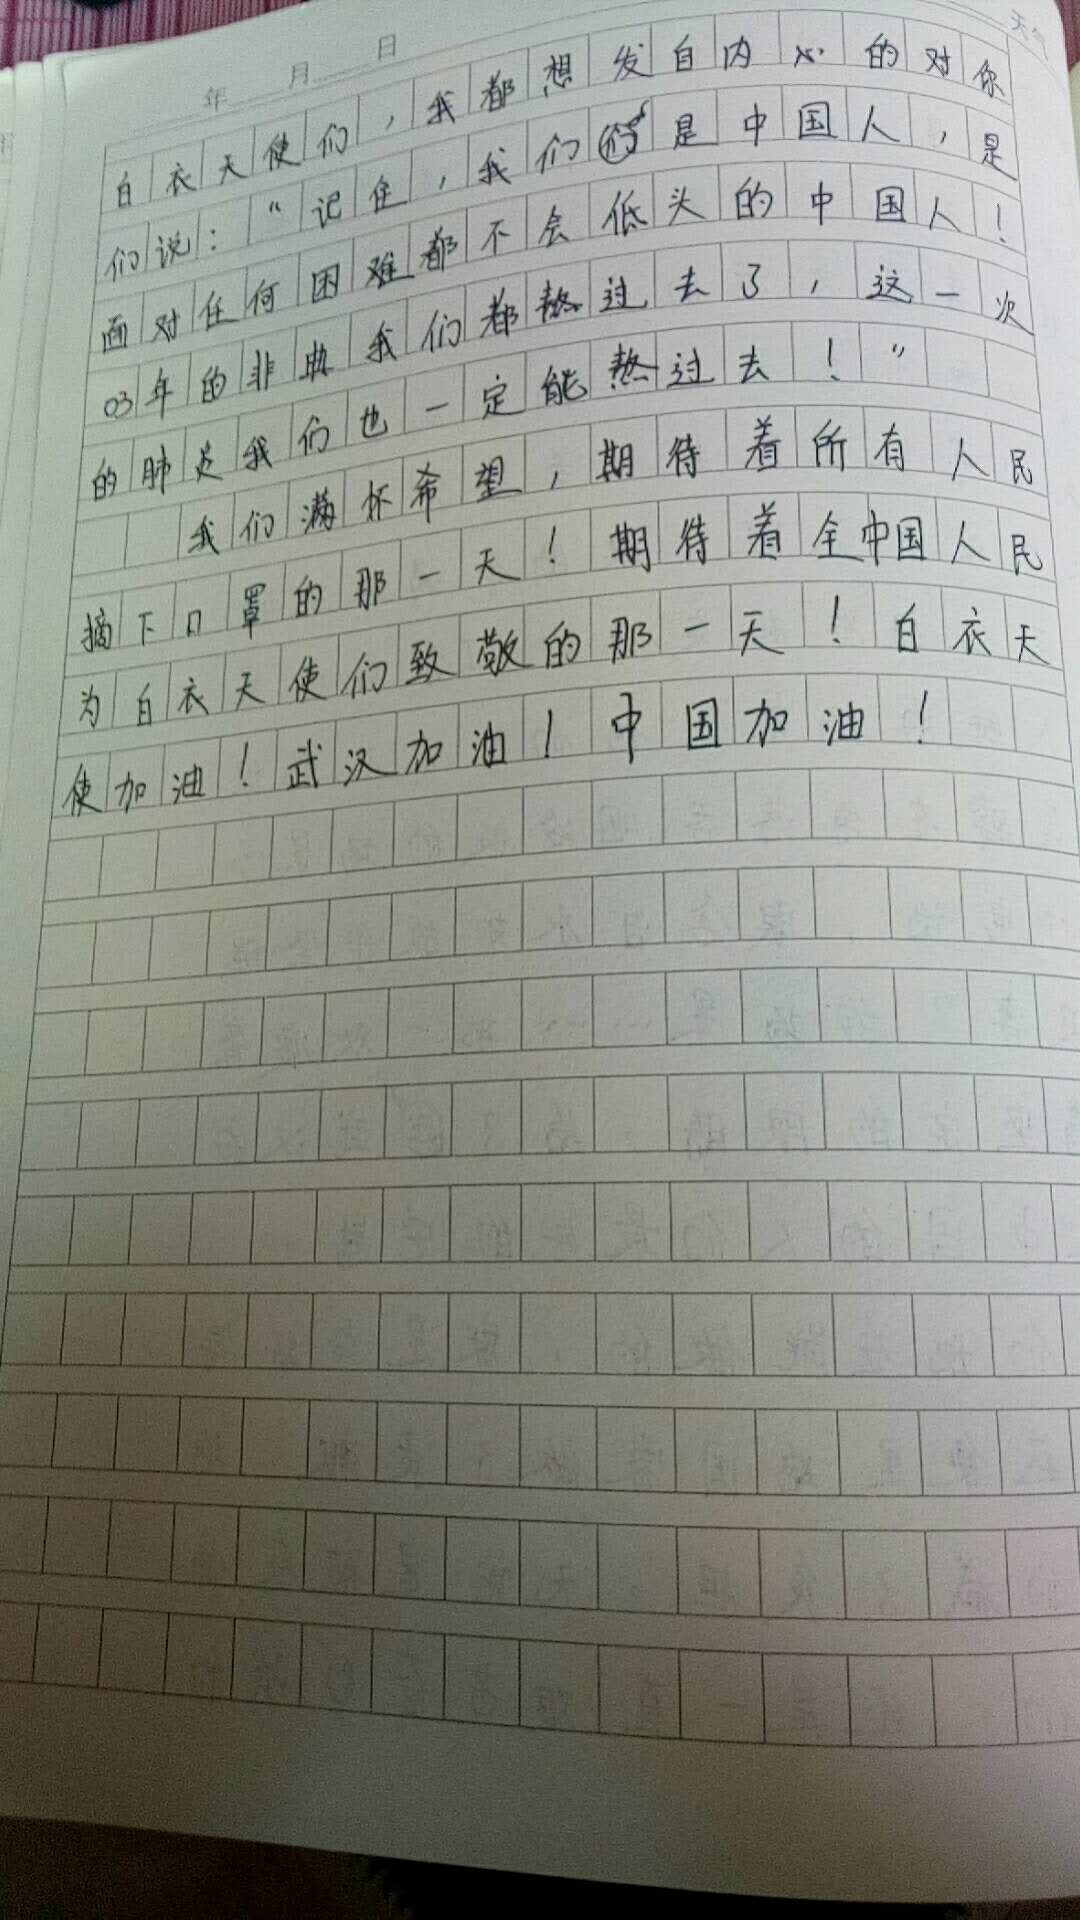 年 月 日 天气
白衣天使们，我都想发自内心的对你
们说：“记住，我们是中国人，是
面对任何困难都不会低头的中国人！
03年的非典我们都熬过去了，这一次
的肺炎我们也一定能熬过去！”
我们满怀希望，期待着所有人民
摘下口罩的那一天！期待着全中国人民
为白衣天使们致敬的那一天！白衣天
使加油！武汉加油！中国加油！